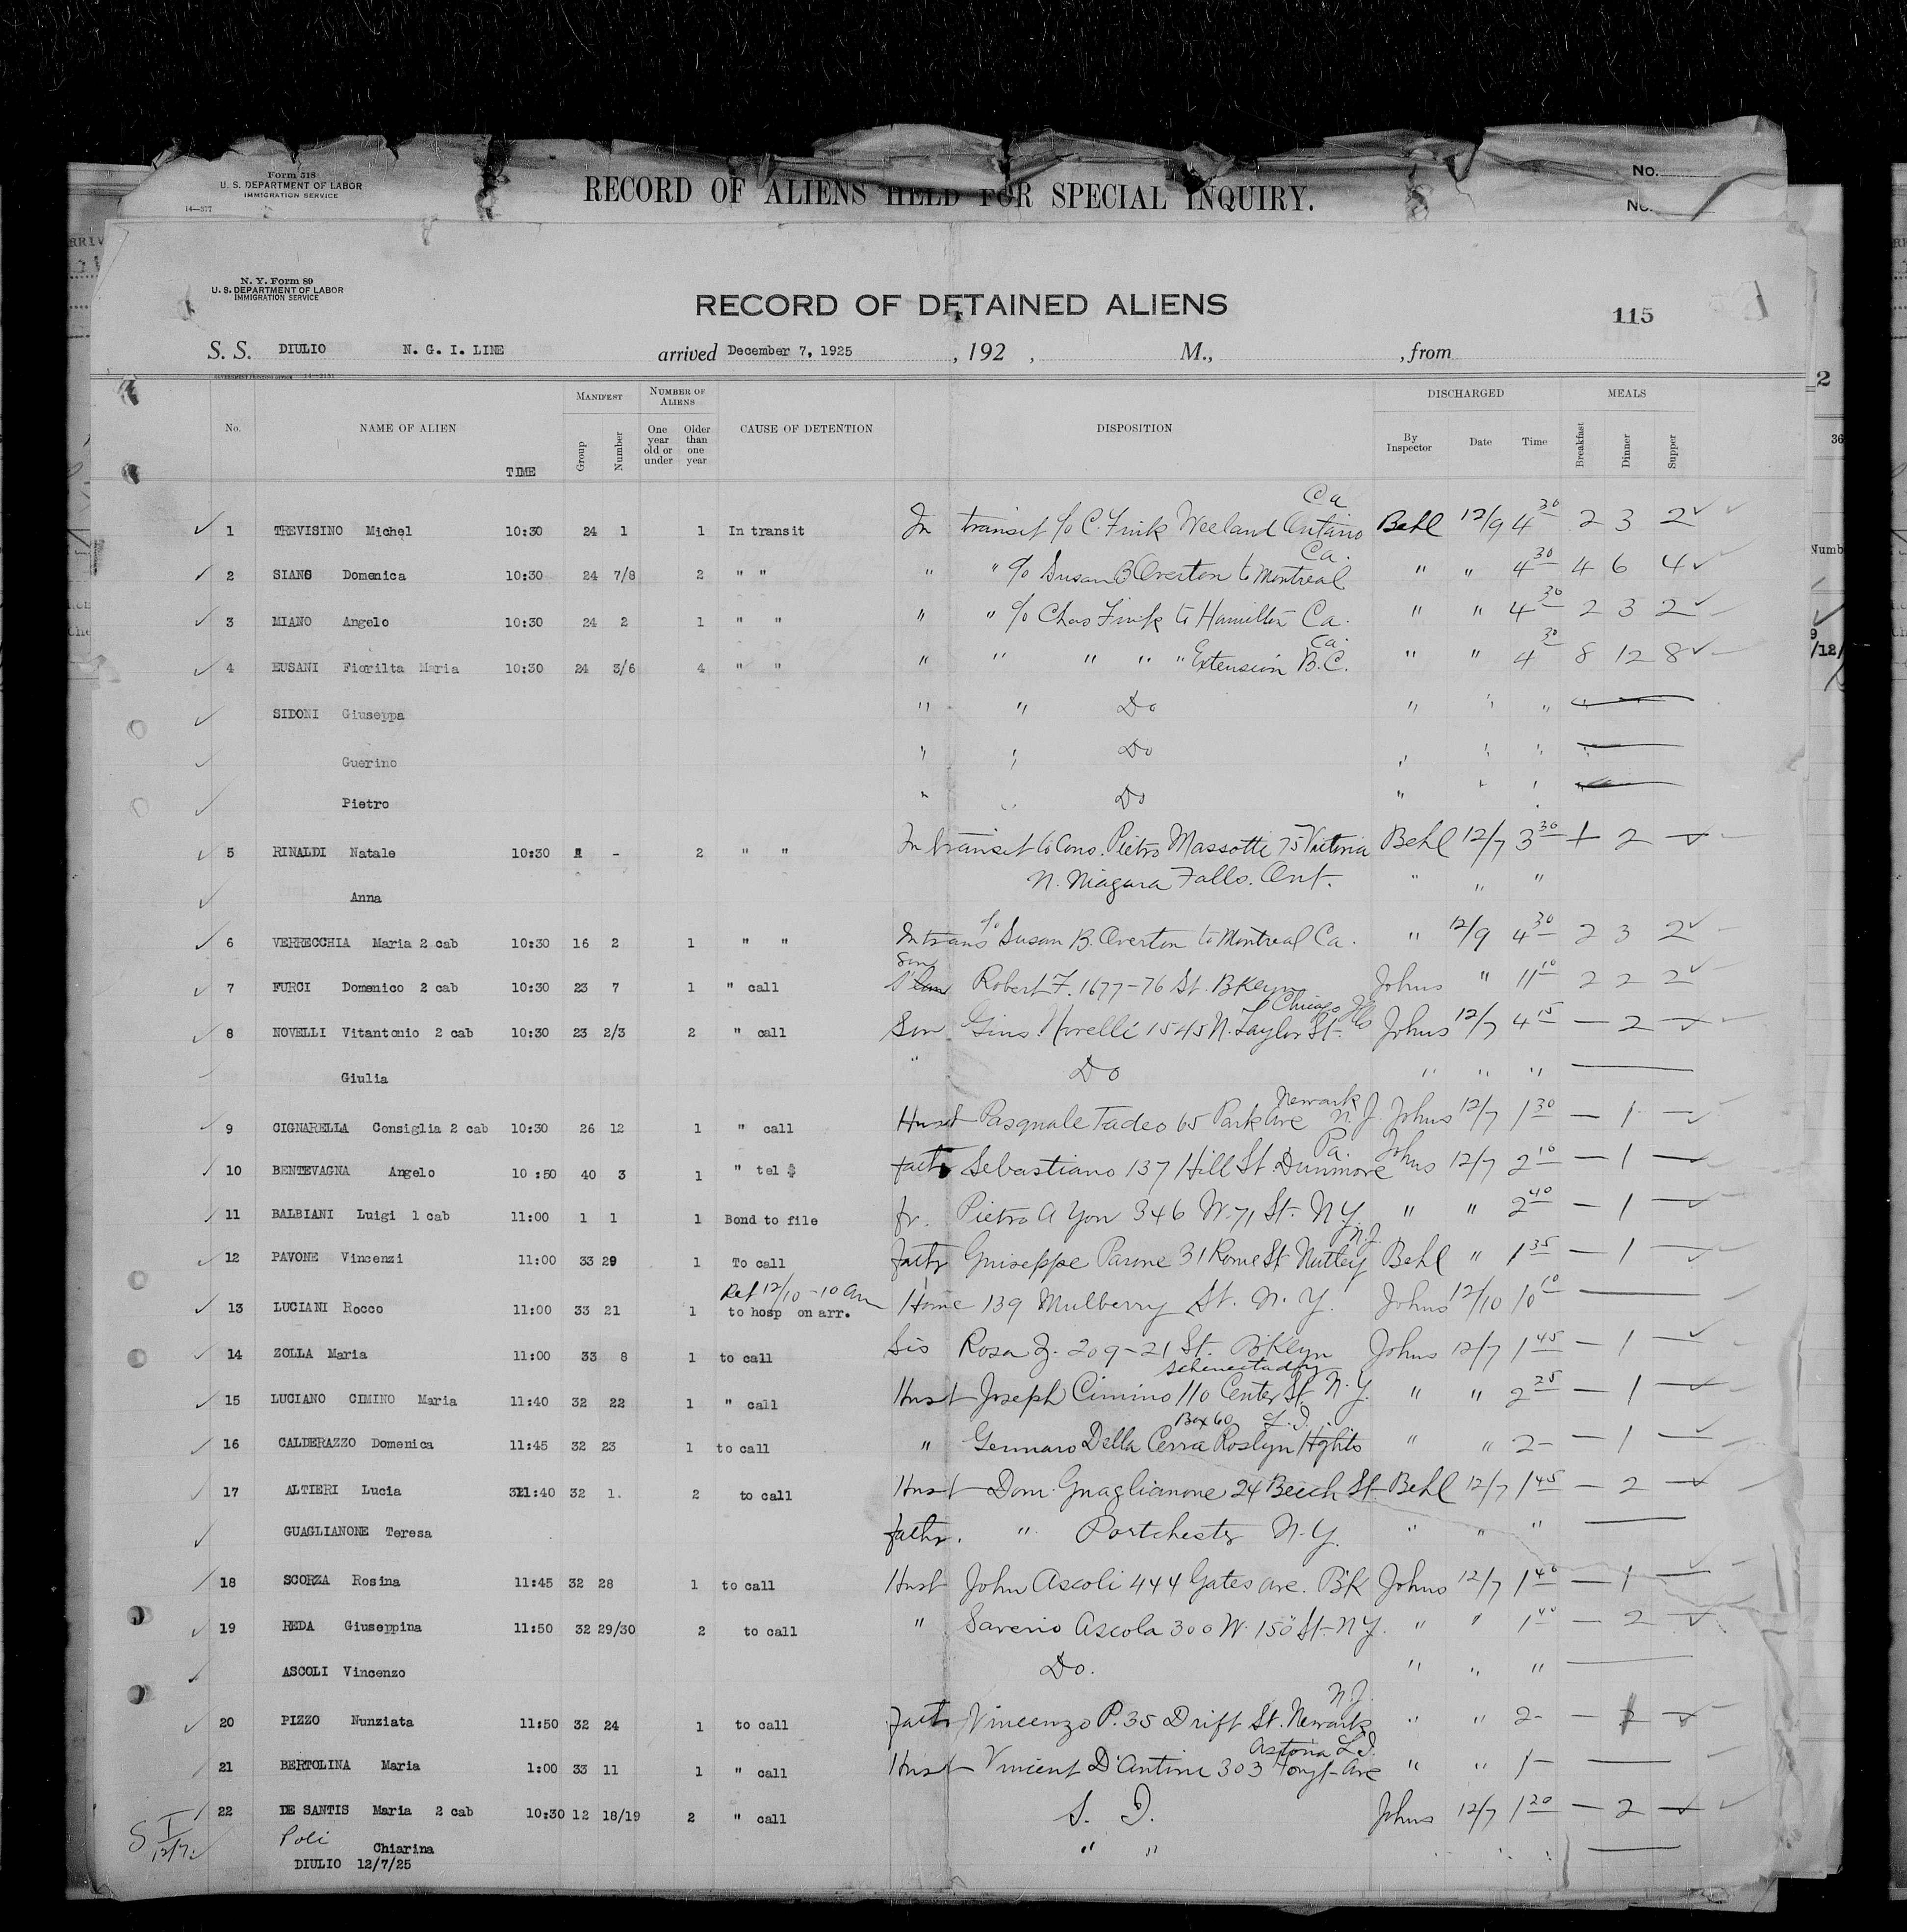 Form 518
U. S. DEPARTMENT OF LABOR
IMMIGRATION SERVICE
14—577
RECORD OF ALIENS HELD FOR SPECIAL INQUIRY.
No.
No.
N. Y. Form 89
U. S. DEPARTMENT OF LABOR
IMMIGRATION SERVICE
RECORD OF DETAINED ALIENS
115
S. S. DIULIO N. G. I. LINE arrived December 7, 1925 , 192 , M., , from
No. NAME OF ALIEN TIME MANIFEST Group Number NUMBER OF ALIENS One year old or under Older than one year CAUSE OF DETENTION DISPOSITION DISCHARGED By Inspector Date Time MEALS Breakfast Dinner Supper
1 TREVISINO Michel 10:30 24 1 1 In transit In transit c/o C. Fink Weeland Ontario Ca Behl 12/9 4 30 2 3 2
2 SIANO Domenica 10:30 24 7/8 2 " " " " c/o Susan B Overton to Montreal Ca. " " 4 30 4 6 4
3 MIANO Angelo 10:30 24 2 1 " " " " c/o Chas Fink to Hamilton Ca. " " 4 30 2 3 2
4 EUSANI Fiorilta Maria 10:30 24 3/6 4 " " " " " " " Extension B.C. Ca. " " 4 30 8 12 8
SIDONI Giuseppa " " Do " " "
Guerino " " Do " " "
Pietro " " Do " " "
5 RINALDI Natale 10:30 1 - 2 " " In transit to Cons. Pietro Massotti 75 Victoria Behl 12/7 3 30 + 2 -
Anna N. Niagara Falls. Ont. " " "
6 VERRECCHIA Maria 2 cab 10:30 16 2 1 " " In trans c/o Susan B. Overton to Montreal Ca. " 12/9 4 30 2 3 2
7 FURCI Domenico 2 cab 10:30 23 7 1 " call Son Robert F. 1677-76 St. BKlyn Johns " 11 10 2 2 2
8 NOVELLI Vitantonio 2 cab 10:30 23 2/3 2 " call Son Gino Novelli 1545 N. Taylor St. Chicago Ills Johns 12/7 4 15 — 2 —
Giulia " Do " " "
9 CIGNARELLA Consiglia 2 cab 10:30 26 12 1 " call Husb Pasquale Tadeo 65 Park Ave Newark N. J. Johns 12/7 1 30 — 1 —
10 BENTEVAGNA Angelo 10:50 40 3 1 " tel $ fath Sebastiano 137 Hill St. Dunmore Pa. Johns 12/7 2 10 — 1 —
11 BALBIANI Luigi 1 cab 11:00 1 1 1 Bond to file fr. Pietro A Yon 346 W. 71 St. N Y. " " 2 40 — 1 —
12 PAVONE Vincenzi 11:00 33 29 1 To call fathr Guiseppe Pavone 31 Rome St Nutley N.J. Behl " 1 35 — 1 —
13 LUCIANI Rocco 11:00 33 21 1 Ret 12/10 - 10 am to hosp on arr. Home 139 Mulberry St. N. Y. Johns 12/10 10 10 —
14 ZOLLA Maria 11:00 33 8 1 to call Sis Rosa Z. 209-21 St. B'Klyn Johns 12/7 1 45 — 1 —
15 LUCIANO CIMINO Maria 11:40 32 22 1 " call Husb Joseph Cimino 110 Center St Schenectady N. Y. " " 2 25 — 1 —
16 CALDERAZZO Domenica 11:45 32 23 1 to call " Gennaro Della Cerra Box 60 Roslyn Hghts L. I. " " 2- — 1 —
17 ALTIERI Lucia 11:40 32 1. 2 to call Husb Dom. Guaglianone 24 Beech St Behl 12/7 1 45 — 2 —
GUAGLIANONE Teresa fathr. " Portchester N. Y. " " "
18 SCORZA Rosina 11:45 32 28 1 to call Husb John Ascoli 444 Gates Ave. BK Johns 12/7 1 40 — 1 —
19 REDA Giuseppina 11:50 32 29/30 2 to call " Saverio Ascola 300 W. 150 St. N Y. " " 1 40 — 2 —
ASCOLI Vincenzo Do. " " "
20 PIZZO Nunziata 11:50 32 24 1 to call fathr Vincenzo P. 35 Drift St. Newark N. J. " " 2- — —
21 BERTOLINA Maria 1:00 33 11 1 " call Husb Vincent D'Antine 303 Ave Astoria L.I. " " 1- —
22 DE SANTIS Maria 2 cab 10:30 12 18/19 2 " call S. I. Johns 12/7 1 20 — 2 —
S I 12/7 Poli Chiarina " "
DIULIO 12/7/25